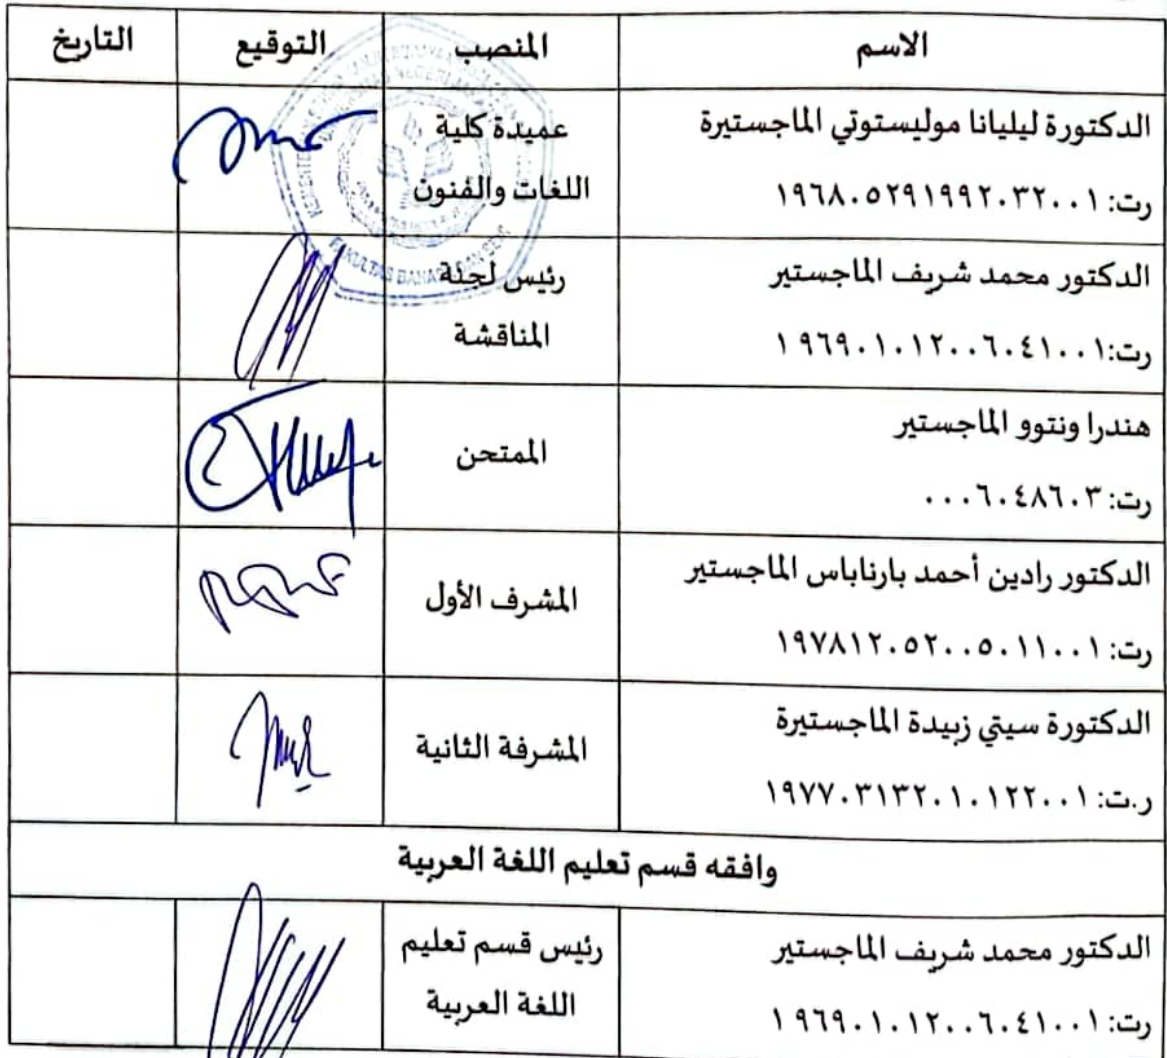 الاسم المنصب التوقيع التاريخ
الدكتورة ليليانا موليستوتي الماجستيرة
رت: ١٩٦٨٠٥٢٩١٩٩٢٠٣٢٠٠١
عميدة كلية
اللغات والفنون
الدكتور محمد شريف الماجستير
رت:١٩٦٩٠١٠١٢٠٠٦٠٤١٠٠١
رئيس لجنة
المناقشة
هندرا ونتوو الماجستير
رت: ٠٠٠٦٠٤٨٦٠٣
الممتحن
الدكتور رادين أحمد بارناباس الماجستير
رت: ١٩٧٨١٢٠٥٢٠٠٥٠١١٠٠١
المشرف الأول
الدكتورة سيتي زبيدة الماجستيرة
ر.ت: ١٩٧٧٠٣١٣٢٠١٠١٢٢٠٠١
المشرفة الثانية
وافقه قسم تعليم اللغة العربية
الدكتور محمد شريف الماجستير
رت:١٩٦٩٠١٠١٢٠٠٦٠٤١٠٠١
رئيس قسم تعليم
اللغة العربية
FAKULTAS BAHASA DAN